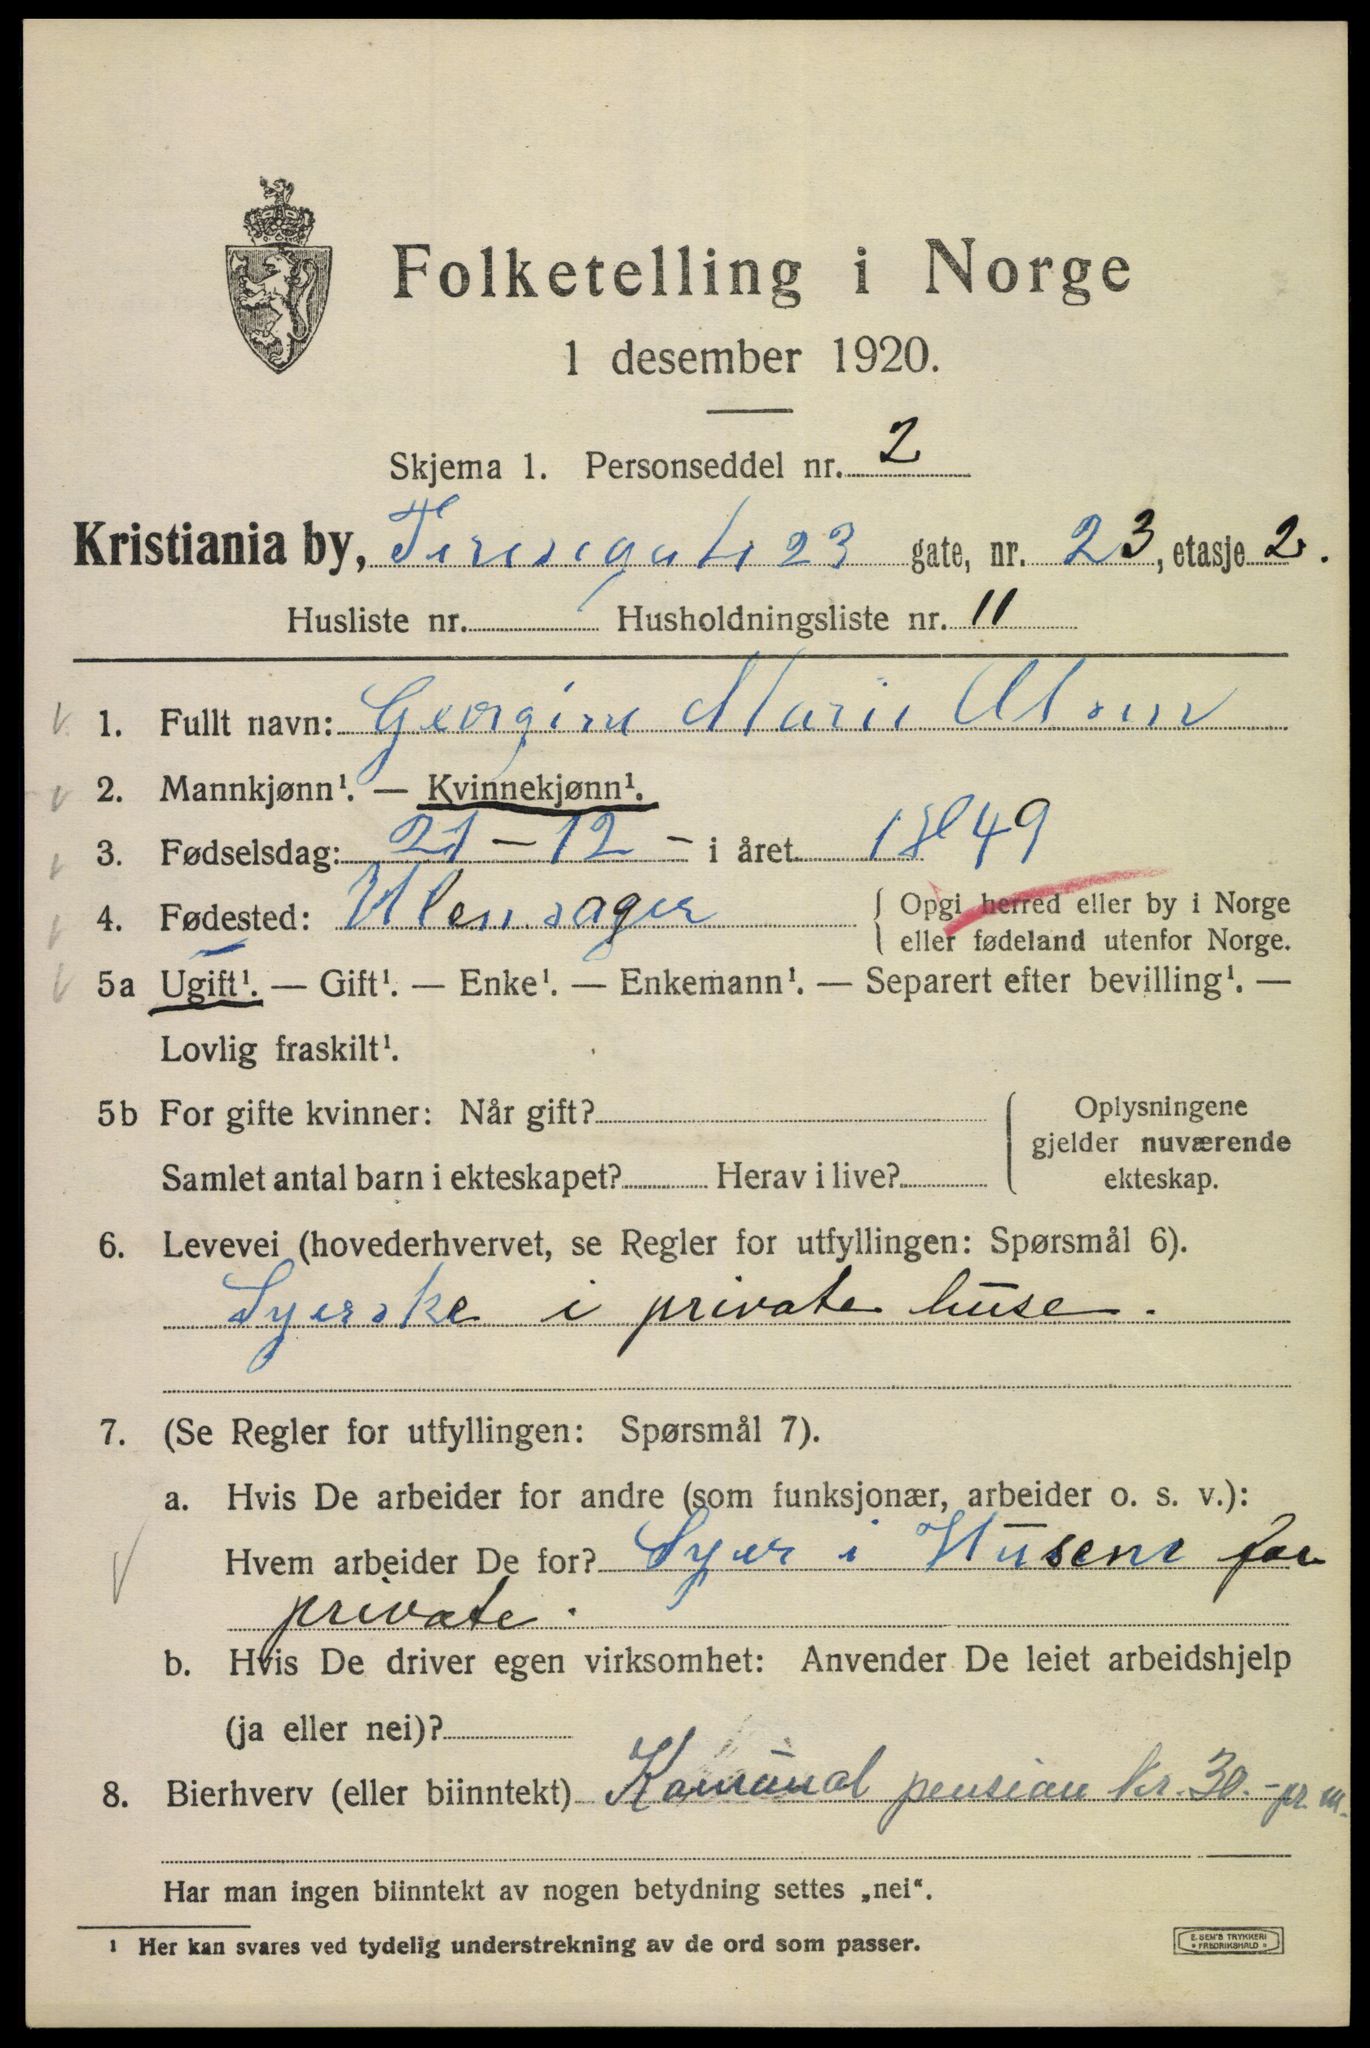 Folketelling i Norge
1 desember 1920.
Skjema 1. Personseddel nr. 2
Kristiania by, Teresegate 23 gate, nr. 23, etasje 2.
Husliste nr. Husholdningsliste nr. 11
1. Fullt navn: Georgine Marie
2. Mannkjønn¹. — Kvinnekjønn¹.
3. Fødselsdag: 21 - 12 - i året 1849
4. Fødested: Ulensager { Opgi herred eller by i Norge
eller fødeland utenfor Norge.
5a Ugift¹. — Gift¹. — Enke¹. — Enkemann¹. — Separert efter bevilling¹. —
Lovlig fraskilt¹.
5b For gifte kvinner: Når gift? Oplysningene
gjelder nuværende
Samlet antal barn i ekteskapet? Herav i live? ekteskap.
6. Levevei (hovederhvervet, se Regler for utfyllingen: Spørsmål 6).
Syerske i private huse.
7. (Se Regler for utfyllingen: Spørsmål 7).
a. Hvis De arbeider for andre (som funksjonær, arbeider o. s. v.):
Hvem arbeider De for? Syer i Husene for
private.
b. Hvis De driver egen virksomhet: Anvender De leiet arbeidshjelp
(ja eller nei)?
8. Bierhverv (eller biinntekt) Komunal pension kr. 30.- pr. m.
Har man ingen biinntekt av nogen betydning settes „nei“.
¹ Her kan svares ved tydelig understrekning av de ord som passer.
E. SEM'S TRYKKERI
• FREDRIKSHALD •